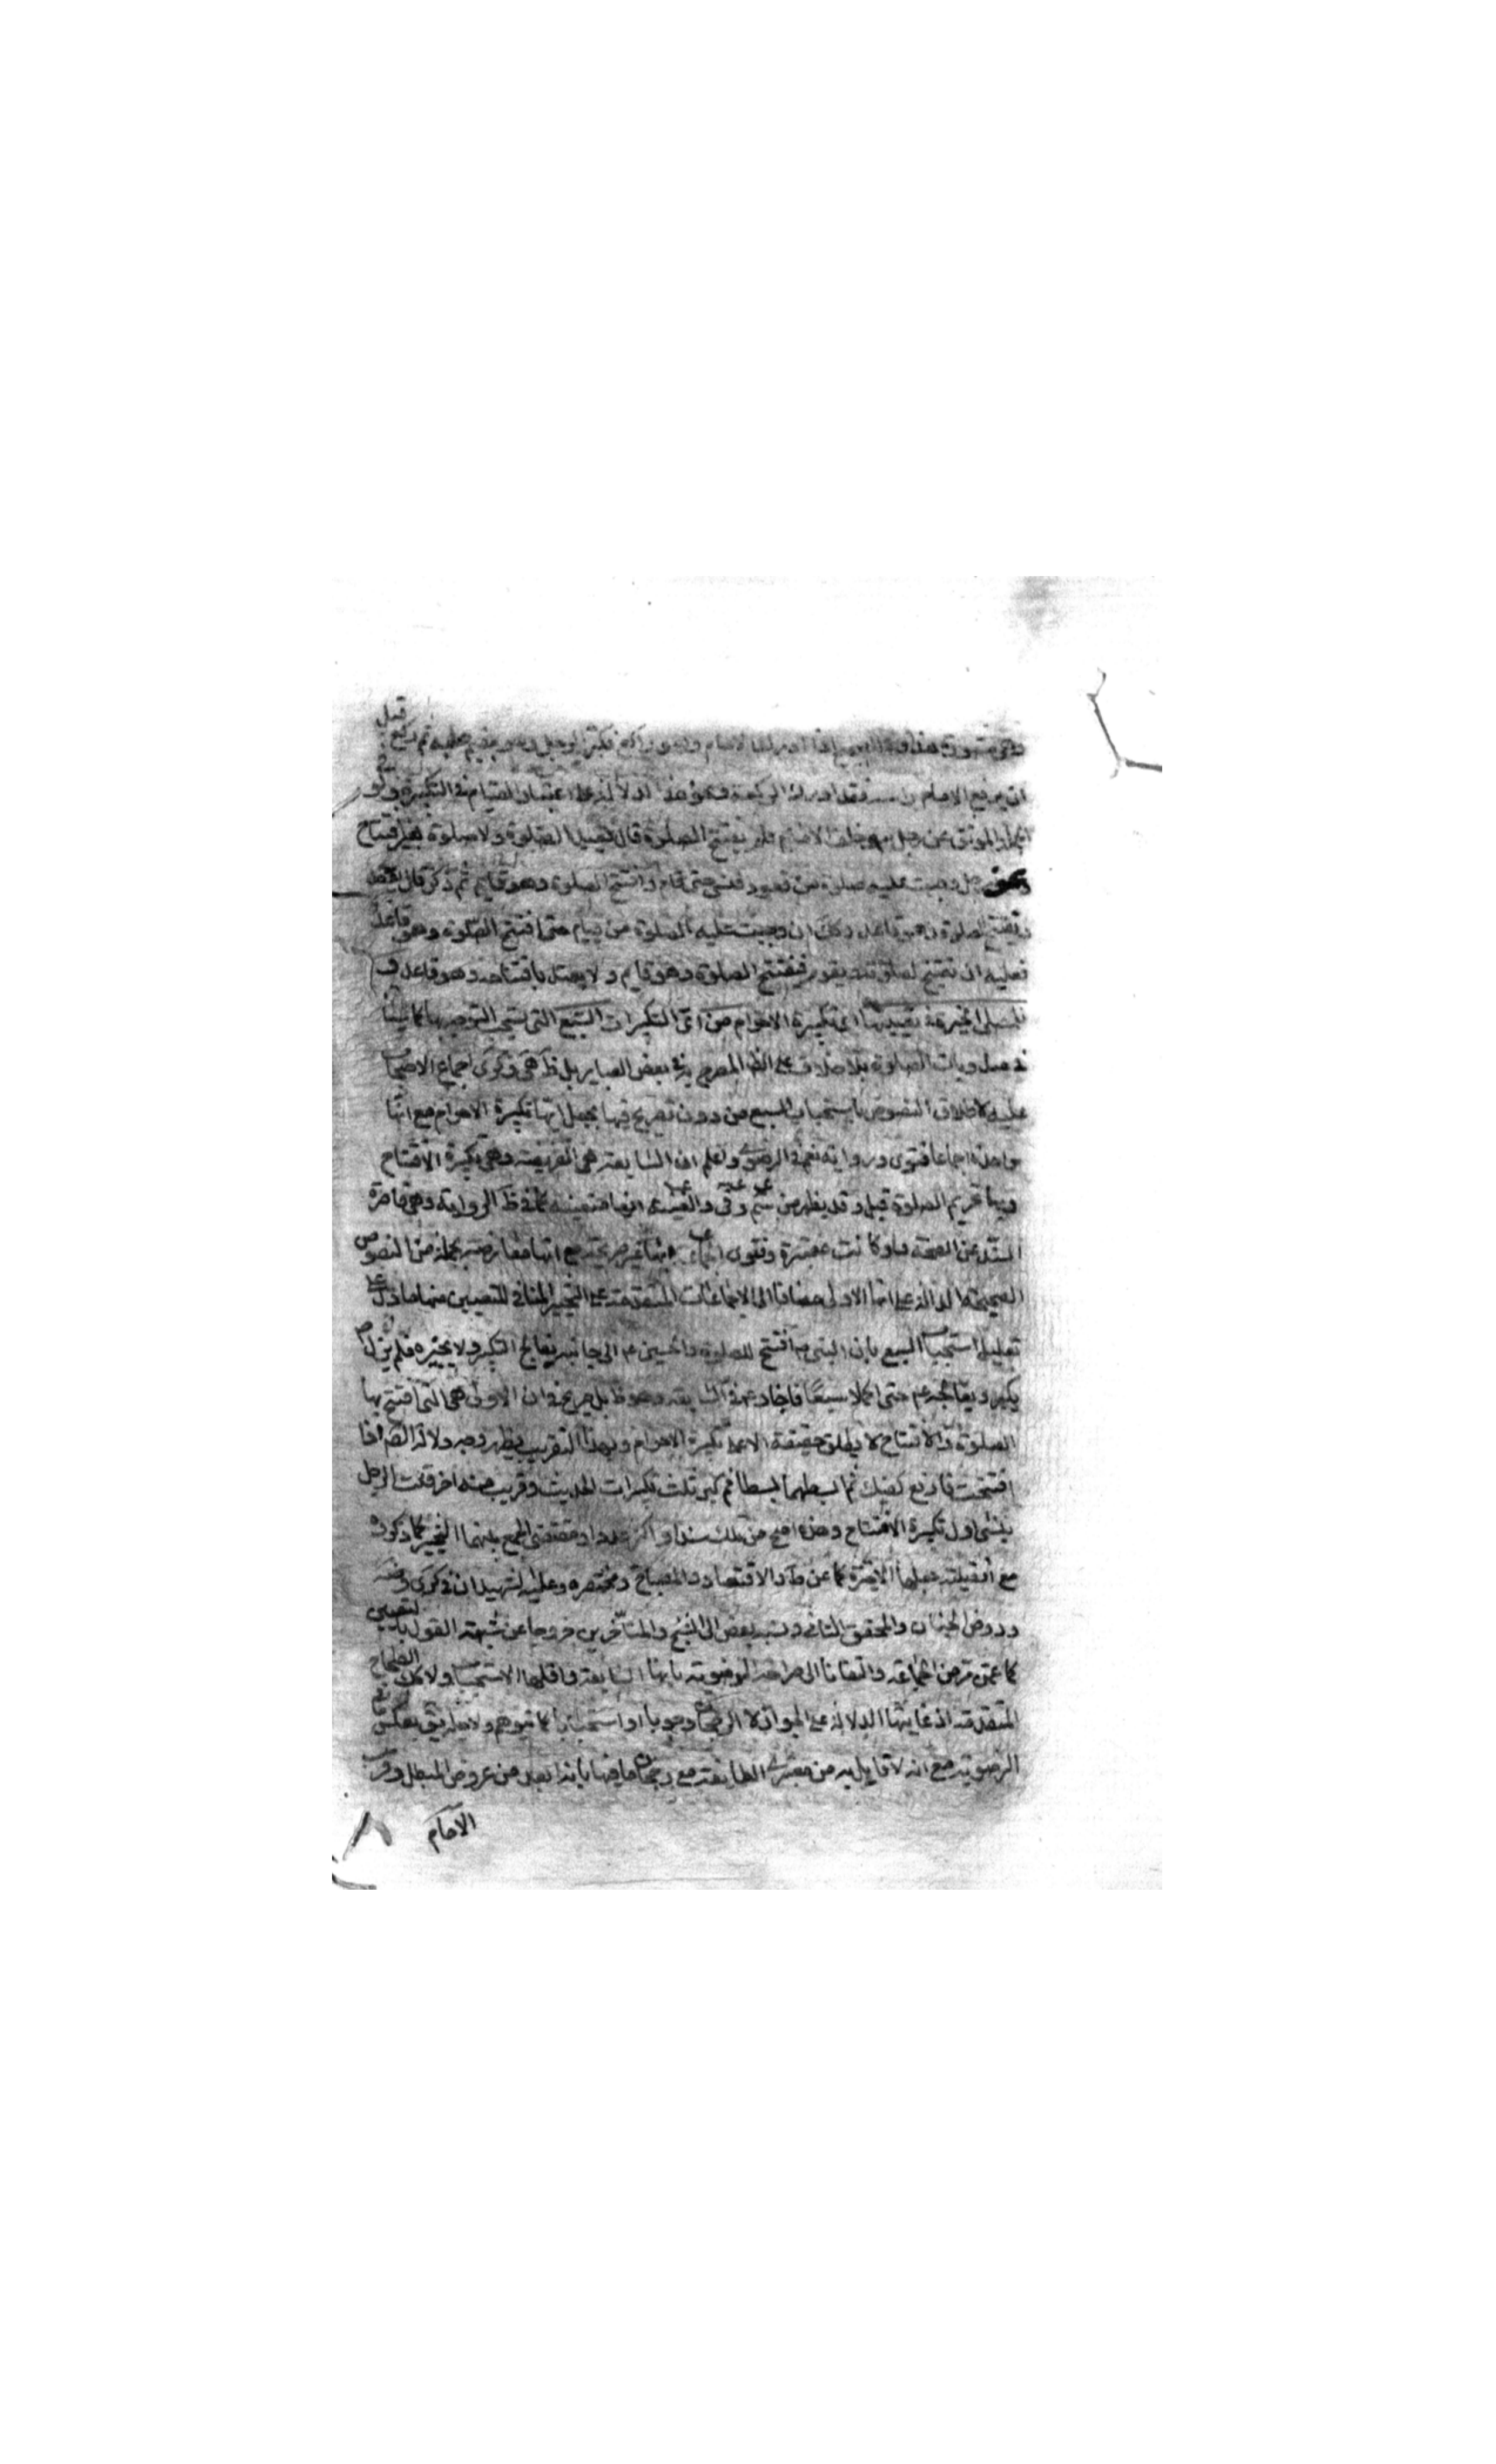 قبل
اذا ادرك الامام وهو راكع فكبر الرجل وهو مقيم صلبه ثم ركع
ان يرفع الامام راسه فقد ادرك الركعة ونحو هذا لدلالة على اعتبار القيام في التكبيرة
الموثق عن رجل خلف الامام فلم يفتتح الصلوة قال يعيد الصلوة ولا صلوة بغير افتتاح
رجل وجبت عليه صلوة من قعود فنسى حتى قام وافتتح الصلوة وهو قايم ثم ذكر قال يقعد
ويفتتح الصلوة وهو قاعد وكك ان وجبت عليه الصلوة من قيام حتى افتتح الصلوة وهو قاعد
فعليه ان يفتتح الصلوة ويقوم فيفتتح الصلوة وهو قايم ولا يعتد بافتتاحه وهو قاعد و
للمصلي الخيرة في تعيينها اي تكبيرة الاحرام من اي التكبيرات السبع التي يستحب التوجه بها
الصلوة بلا خلاف على الظ المصرح به في بعض العباير بل ظ كرى اجماع الاصحاب
عليه لاطلاق النصوص باستحباب السبع من دون تصريح فيها بجعل ايها تكبيرة الاحرام مع انها
واحدة اجماعا فتوى ورواية نعم في الرضوى واعلم ان السابعة هي الفريضة وهي تكبيرة الافتتاح
وبها تحريم الصلوة قيل وقد يظهر من انها متعينة الرواية وهي قاصرة
السند عن الصحة ولو كانت معتبرة وفتوى غير صريحة مع انها معارضة بجملة من النصوص
الصحيحة الدالة على انها الاولى مضافا الى الاجماعات المتقدمة على التخيير المنافي للتعيين منها ما دل على
تعليل استحباب السبع بان النبى ص افتتح للصلوة والحسين ع الى جانبه يعالج التكبير ولا يحيره فلم يزل ص
يكبر ويعالجه ع حتى اكمل سبعا فاحاد ع في السابعة وهو ظ بل صريح في ان الاولى هي التي افتتح بها
الصلوة والافتتاح لا يطلق حقيقة الا على تكبيرة الاحرام وبهذا التقريب يظهر وجه دلالة اذا
افتتحت فارفع كفيك ثم ابسطهما بسطا ثم كبر ثلث تكبيرات الحديث وقريب منه اخر قلت الرجل
ينسى اول تكبيرة الافتتاح وهذه اصح من تلك سندا واكثر عددا ومقتضى الجمع بينهما التخيير كما ذكروه
مع افضلية جعلها الاخيرة كما عن ط والاقتصاد والمصباح ومختصره وعليه الشهيدان في كرى
وروض الجنان والمحقق الثاني ونسبه بعض الى الشيخ والمتاخرين خروجا عن شبهة القول بالتعيين
كما عمن مر من الجماعة والتفاتا الى صراحة الرضوية بانها السابعة واقلها الاستحباب ولا كك الصحاح
المتقدمة اذ غايتها الدلالة على الجواز لا الرجحان وجوبا او استحبابا كما يتوهم ولا طريق بعكس
الرضوية مع انه لا قايل به من معتبري الطايفة مع رجحان ما فيها بانه ابعد من عروض المبطل وقرب
الامام